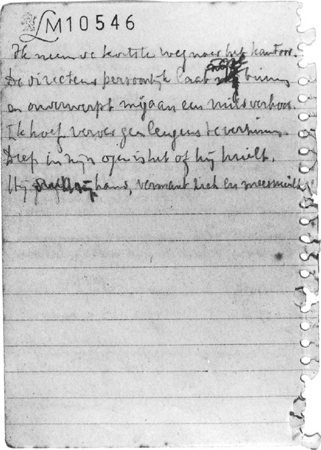 LM10546
Ik neem de kortste weg naar het kantoor.
De directeur persoonlijk laat mij binnen
en onderwerpt mij aan een kruisverhoor.
Ik hoef verder geen leugens te verzinnen.
Diep in zijn ogen is het of hij huilt.
Hij hand, vermant zich en meesmuilt